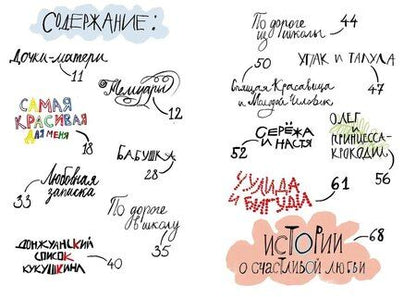 Содержание:
Дочки-матери
11
Мемуары
12
САМАЯ
КРАСИВАЯ
для меня
18
БАБУШКА
28
Любовная
записка
33
По дороге
в школу
35
ДОНЖУАНСКИЙ
СПИСОК
КУКУШКИНА
40
По дороге
из школы
44
УПАК И ТАПУЛА
47
50
Спящая Красавица
и Милый Человек
СЕРЁЖА
И НАСТЯ
52
ОЛЕГ
и
ПРИНЦЕССА-
КРОКОДИЛ
56
УЛИДА
и БИГУДИ
61
ИСТОРИИ
о счастливой любви
68